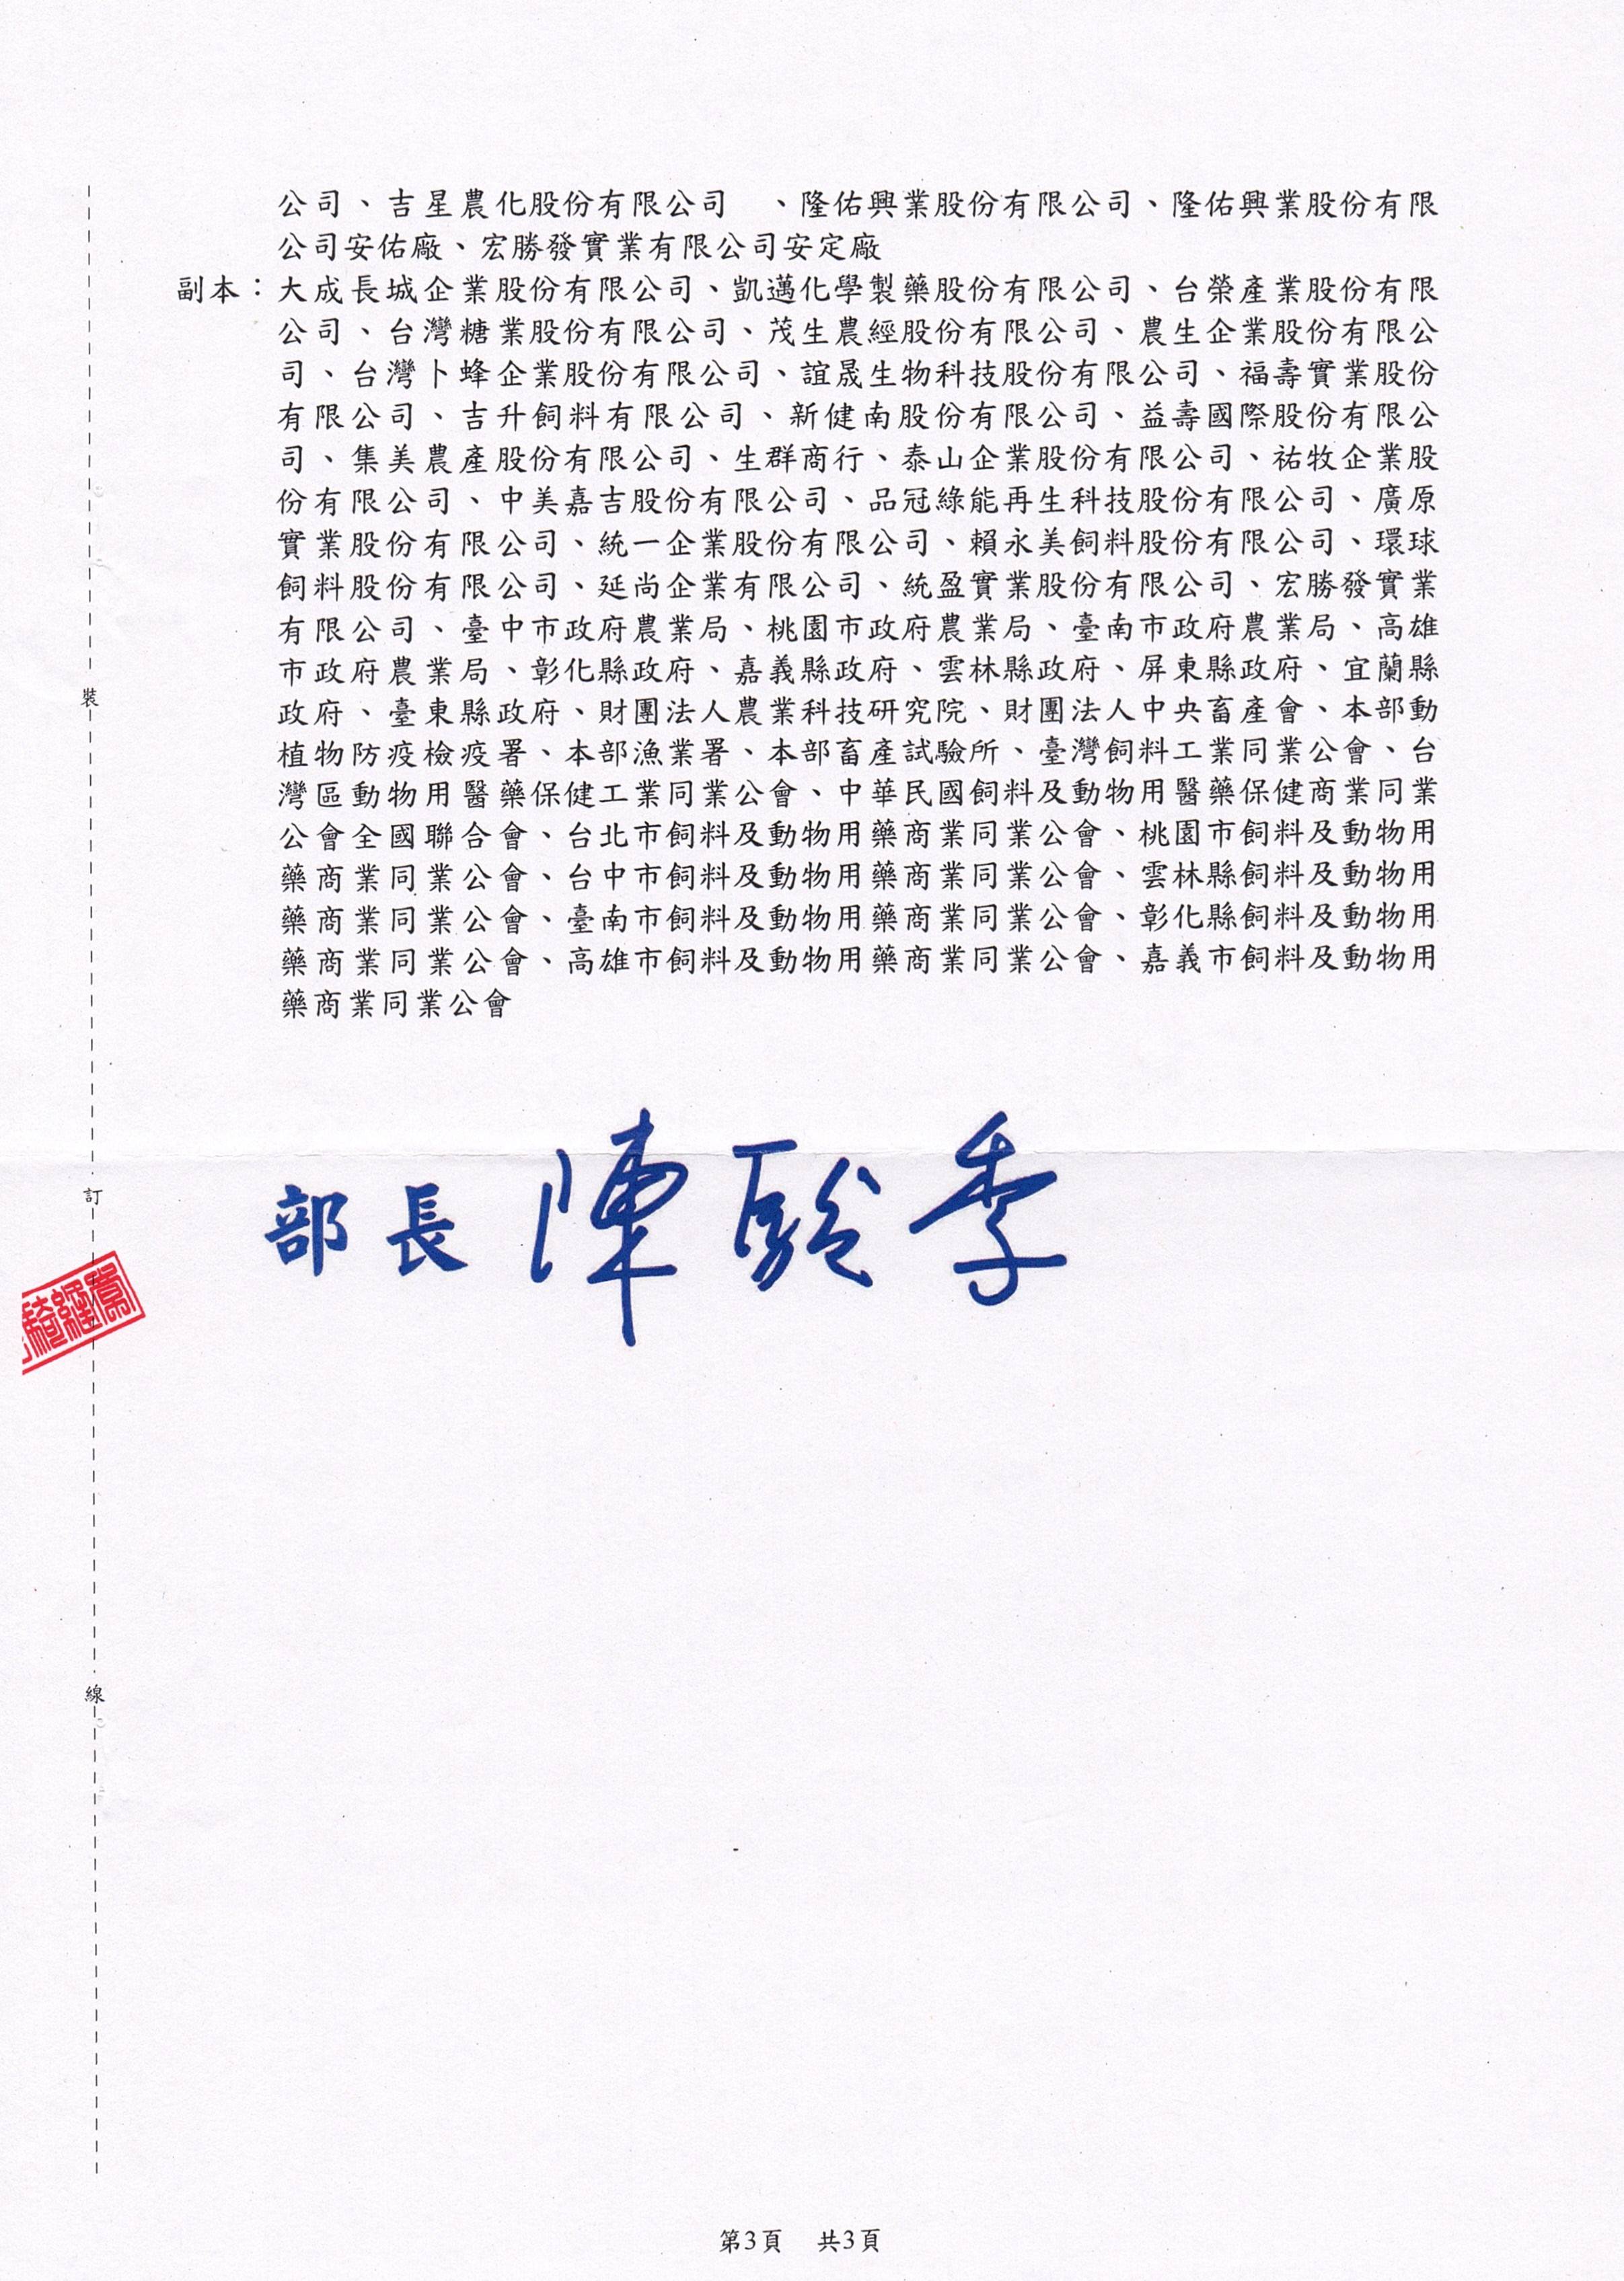 公司、吉星農化股份有限公司　、隆佑興業股份有限公司、隆佑興業股份有限
公司安佑廠、宏勝發實業有限公司安定廠
副本：大成長城企業股份有限公司、凱邁化學製藥股份有限公司、台榮產業股份有限
公司、台灣糖業股份有限公司、茂生農經股份有限公司、農生企業股份有限公
司、台灣卜蜂企業股份有限公司、誼晟生物科技股份有限公司、福壽實業股份
有限公司、吉升飼料有限公司、新健南股份有限公司、益壽國際股份有限公
司、集美農產股份有限公司、生群商行、泰山企業股份有限公司、祐牧企業股
份有限公司、中美嘉吉股份有限公司、品冠綠能再生科技股份有限公司、廣原
實業股份有限公司、統一企業股份有限公司、賴永美飼料股份有限公司、環球
飼料股份有限公司、延尚企業有限公司、統盈實業股份有限公司、宏勝發實業
有限公司、臺中市政府農業局、桃園市政府農業局、臺南市政府農業局、高雄
市政府農業局、彰化縣政府、嘉義縣政府、雲林縣政府、屏東縣政府、宜蘭縣
政府、臺東縣政府、財團法人農業科技研究院、財團法人中央畜產會、本部動
植物防疫檢疫署、本部漁業署、本部畜產試驗所、臺灣飼料工業同業公會、台
灣區動物用醫藥保健工業同業公會、中華民國飼料及動物用醫藥保健商業同業
公會全國聯合會、台北市飼料及動物用藥商業同業公會、桃園市飼料及動物用
藥商業同業公會、台中市飼料及動物用藥商業同業公會、雲林縣飼料及動物用
藥商業同業公會、臺南市飼料及動物用藥商業同業公會、彰化縣飼料及動物用
藥商業同業公會、高雄市飼料及動物用藥商業同業公會、嘉義市飼料及動物用
藥商業同業公會
裝
部長 陳駿季
訂
騎縫章
線
第3頁　共3頁